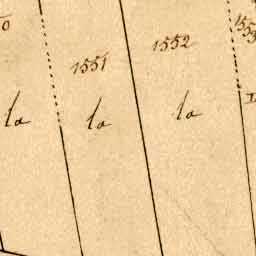 0
1551
1552
1553
la
la
la
I